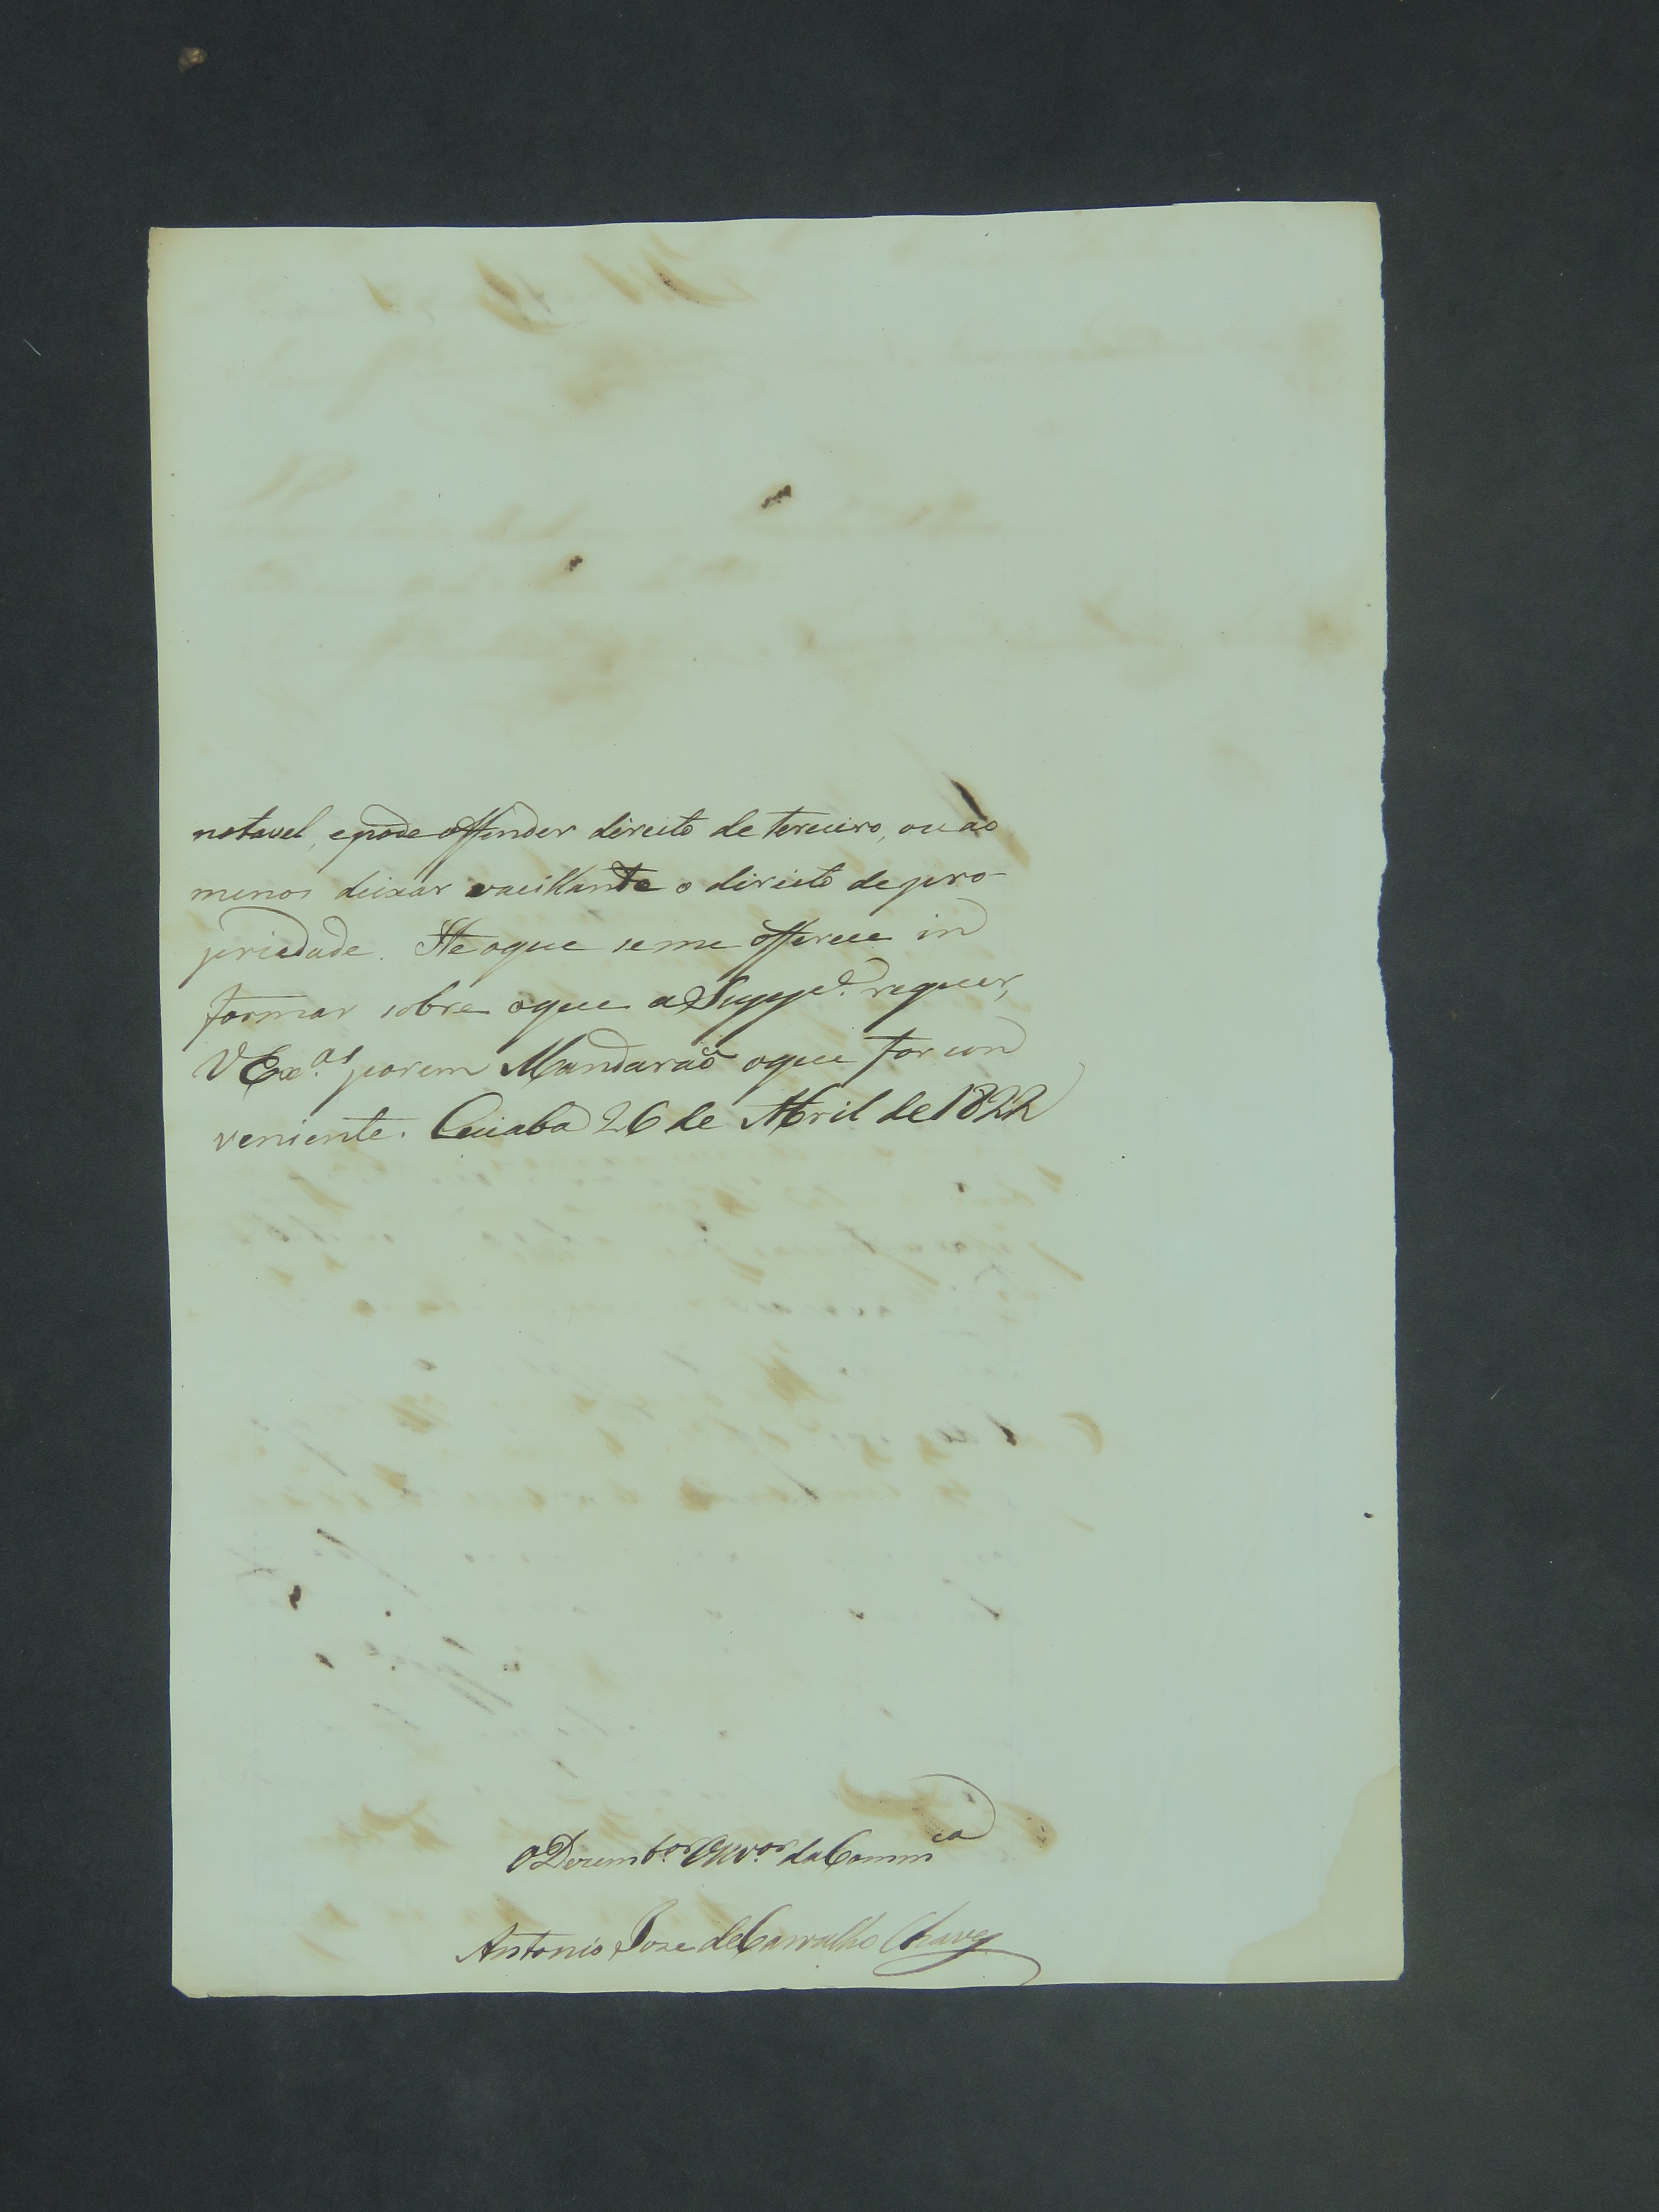 notavel, epode offender direito de terceiro, ou ao
menos deixar vacillante o direito de pro-
priedade. He oque se me offerece in
formar sobre oque a Supp.e requer,
V Ex.as porem Mandaraõ oque for con
veniente. Cuiaba 26 de Abril de 1822
O Dezemb.or Ouv.or da Comm.ca
Antonio Joze de Carvalho Chaves